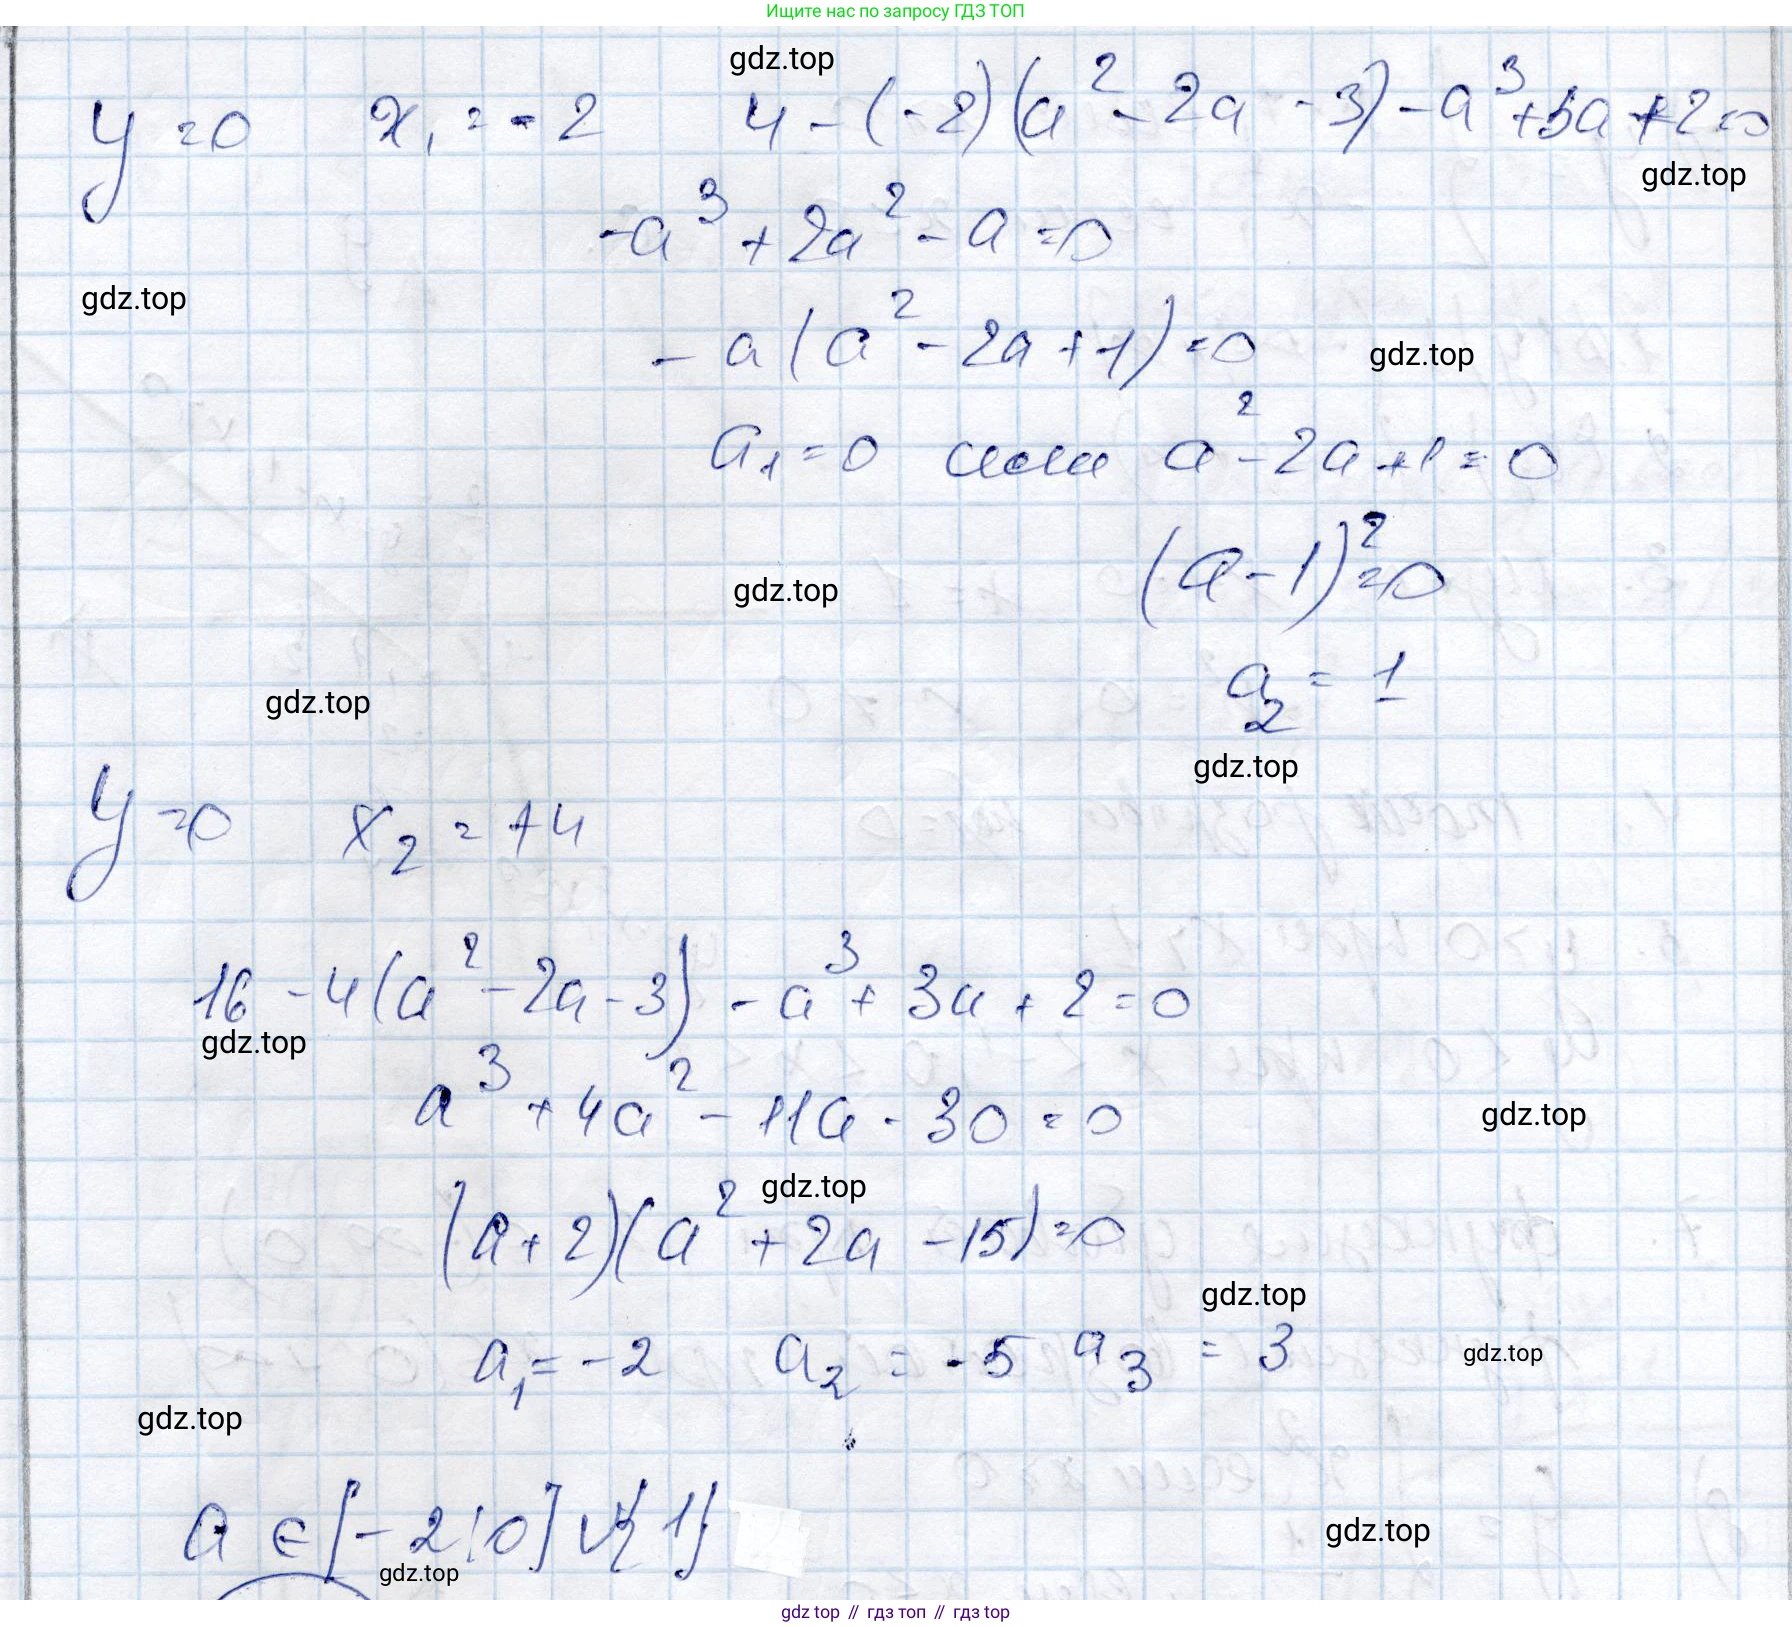 Ищите нас по запросу ГДЗ ТОП
gdz.top
y=0 x₁=-2 4-(-2)(a²-2a-3)-a³+3a+2=0
gdz.top
-a³+2a²-a=0
gdz.top
-a(a²-2a+1)=0
gdz.top
a₁=0 или a²-2a+1=0
(a-1)²=0
gdz.top
a₂=1
gdz.top
gdz.top
y=0 x₂=+4
16-4(a²-2a-3)-a³+3a+2=0
gdz.top
a³+4a²-11a-30=0
gdz.top
gdz.top
(a+2)(a²+2a-15)=0
gdz.top
a₁=-2 a₂=-5 a₃=3
gdz.top
gdz.top
a∈[-2;0]∪{1}
gdz.top
gdz.top
gdz top // гдз топ // гдз top